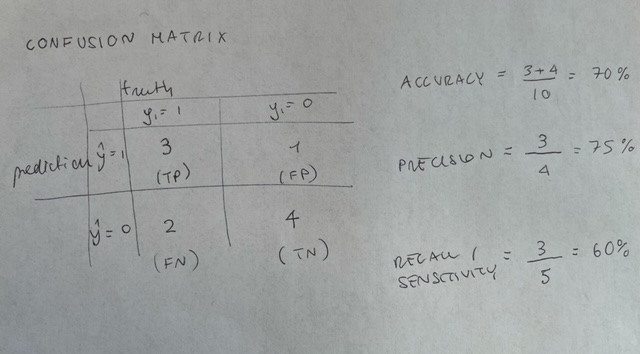 CONFUSION MATRIX
truth
y₁ = 1 y₁ = 0
prediction ŷ = 1 3 1
(TP) (FP)
ŷ = 0 2 4
(FN) (TN)
ACCURACY = 3+4 / 10 = 70%
PRECISION = 3 / 4 = 75%
RECALL / SENSITIVITY = 3 / 5 = 60%